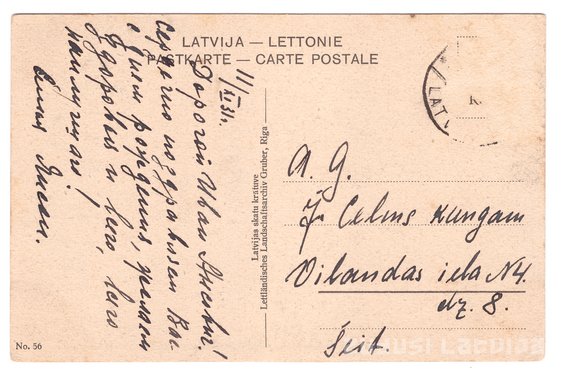 LATVIJA — LETTONIE
PASTKARTE — CARTE POSTALE
11/XI 31.
Дорогой Иван
Сердечно поздравляем Вас
с Днем рождения, желаем
Здоровья и всего, всего
наилучшаго!
Latvijas skatu krātuve
Lettländisches Landschaftsarchiv Gruber, Riga
LATV
K.
A. G.
J. Celms kungam
Vilandas iela N4.
dz. 8.
Šeit.
No. 56